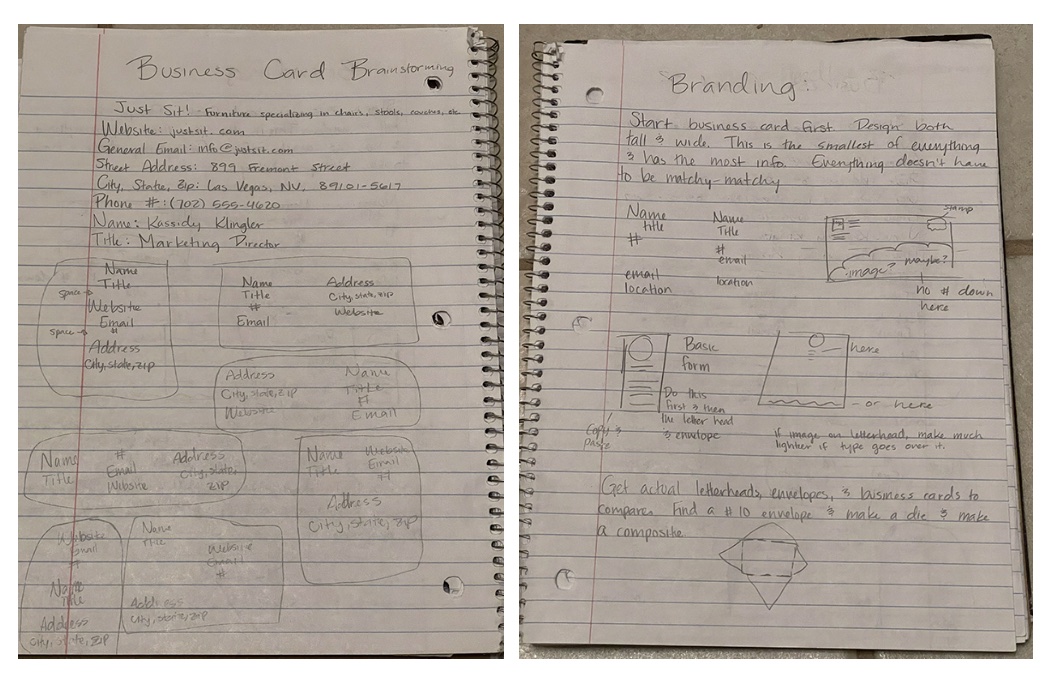 Business Card Brainstorming
Just Sit! Furniture specializing in chairs, stools, couches, etc.
Website: justsit.com
General Email: info@justsit.com
Street Address: 899 Fremont Street
City, State, Zip: Las Vegas, NV. 89101-5617
Phone #: (702) 555-4620
Name: Kassidy Klingler
Title: Marketing Director
Name
Title
space →
Website
Email
space → #
Address
City, state, zip
Name
Title
#
Email
Address
City, state, zip
Website
Address
City, state, zip
Website
Name
Title
#
Email
Name
Title
#
Email
Website
Address
City, state,
zip
Name
Title
Website
Email
#
Address
City, state, zip
Website
Email
#
Name
Title
Address
City, state, zip
Name
Title
Website
Email
#
Address
City, state, zip
Branding:
Start business card first. Design both
tall & wide. This is the smallest of everything
& has the most info. Everything doesn't have
to be matchy-matchy
Name
title
#
email
location
Name
Title
#
email
location
stamp
image?
maybe?
no # down
here
Basic
form
Do this
first & then
the letter head
& envelope
Copy &
paste
here
- or here
If image on letterhead, make much
lighter if type goes over it.
Get actual letterheads, envelopes, & business cards to
compare. Find a #10 envelope & make a die & make
a composite